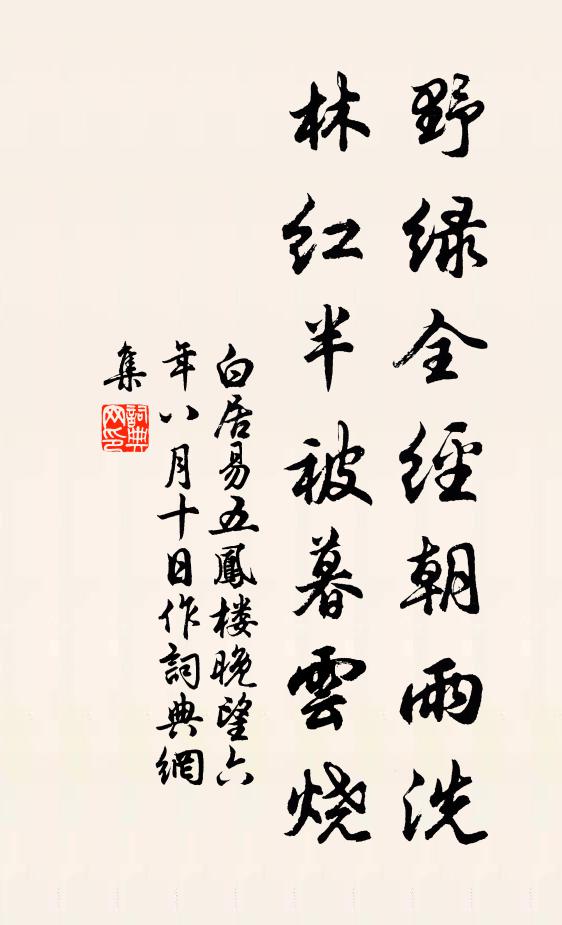 野绿全經朝雨洗
林红半被暮雲烧
白居易五鳳楼晚望六
年八月十日作詞典網
集
詞典
网印